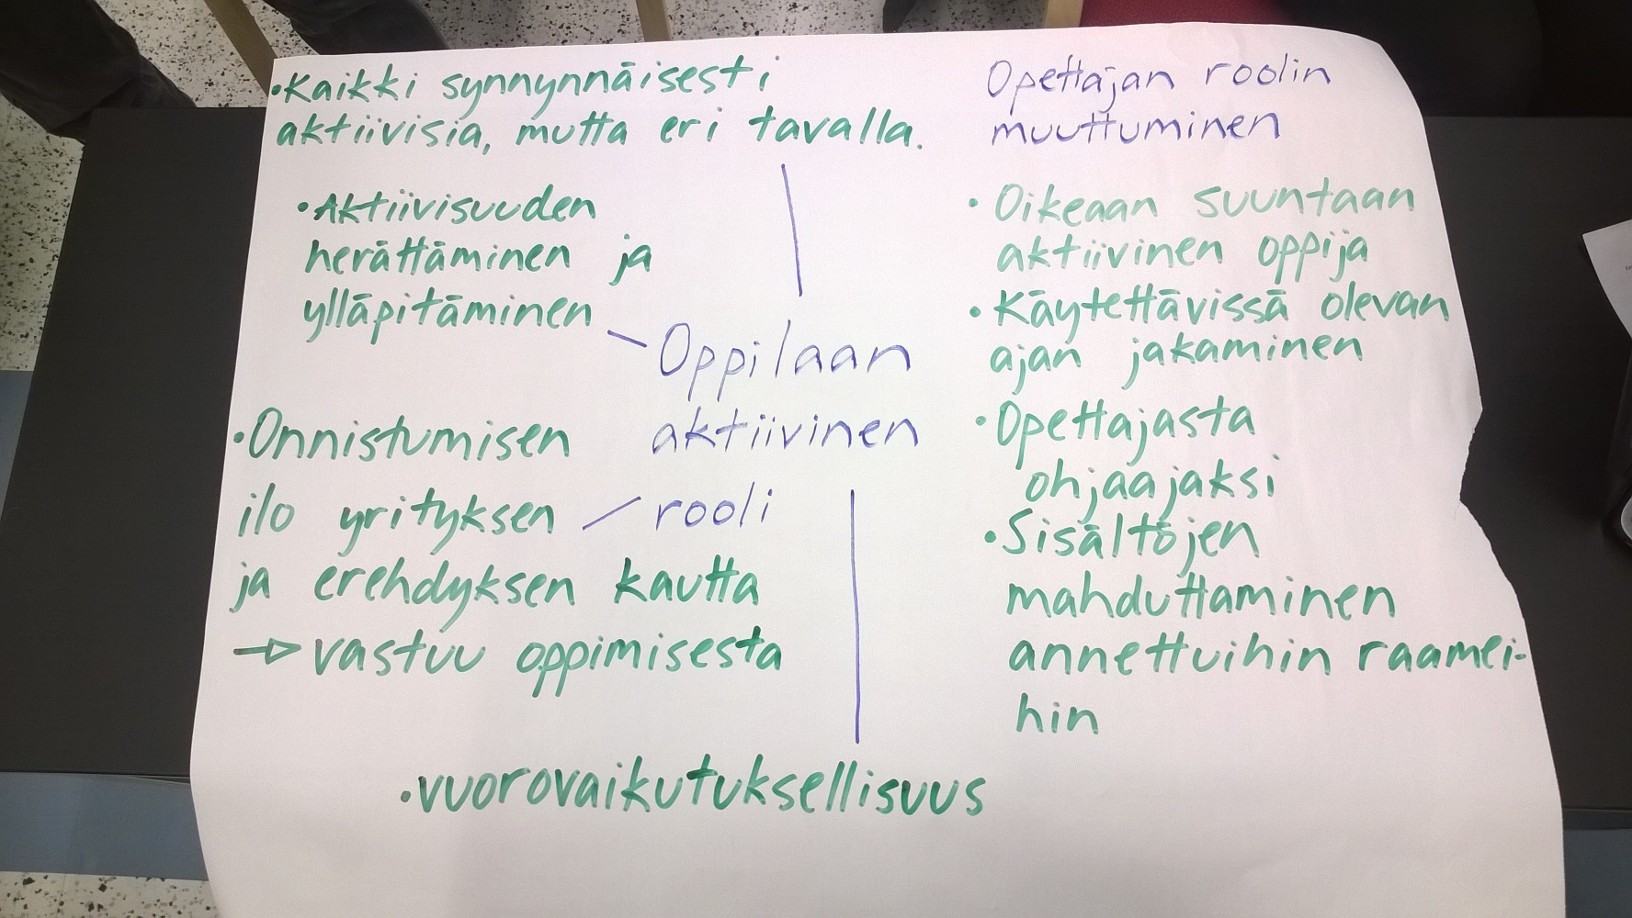 •Kaikki synnynnäisesti
aktiivisia, mutta eri tavalla.
•Aktiivisuuden
herättäminen ja
ylläpitäminen
Oppilaan
aktiivinen
rooli
•Onnistumisen
ilo yrityksen
ja erehdyksen kautta
→ vastuu oppimisesta
•vuorovaikutuksellisuus
Opettajan roolin
muuttuminen
•Oikeaan suuntaan
aktiivinen oppija
•Käytettävissä olevan
ajan jakaminen
•Opettajasta
ohjaajaksi
•Sisältöjen
mahduttaminen
annettuihin raamei-
hin